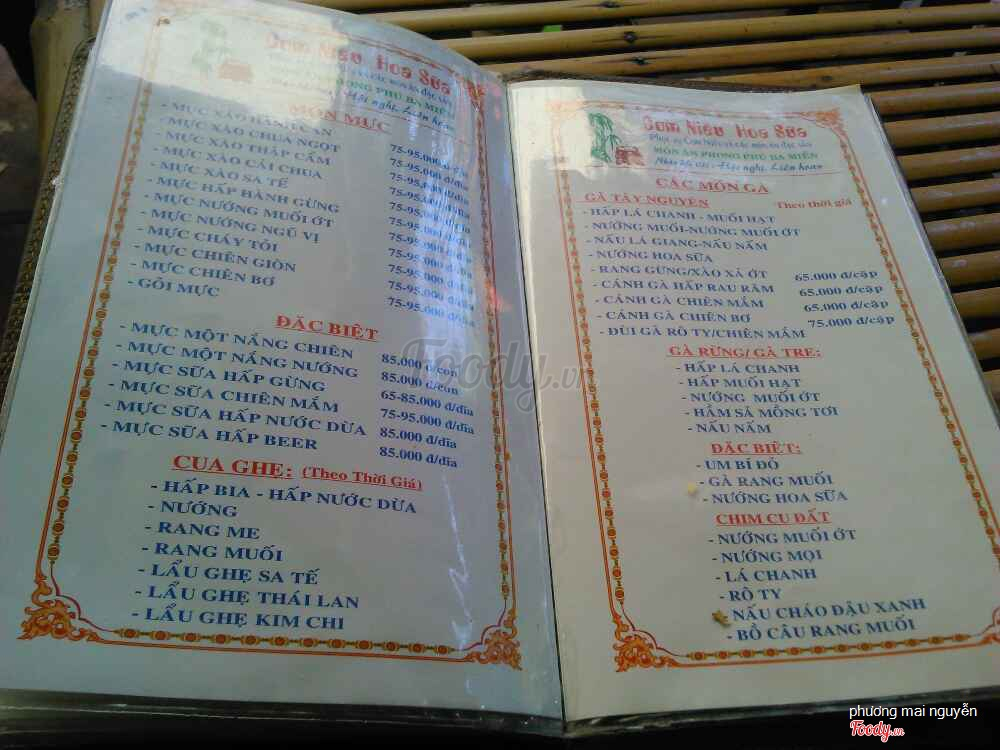 Cơm Niêu Hoa Sữa
PHONG PHÚ BA MIỀN
Hội nghị, Liên hoan
MÓN MỰC
- MỰC XÀO CẦN
- MỰC XÀO CHUA NGỌT
- MỰC XÀO THẬP CẨM
- MỰC XÀO CẢI CHUA
- MỰC XÀO SA TẾ
- MỰC HẤP HÀNH GỪNG
- MỰC NƯỚNG MUỐI ỚT
- MỰC NƯỚNG NGŨ VỊ
- MỰC CHÁY TỎI
- MỰC CHIÊN GIÒN
- MỰC CHIÊN BƠ
- GỎI MỰC
75-95.000 đ/dĩa
75-95.000 đ/dĩa
75-95.000 đ/dĩa
75-95.000 đ/dĩa
75-95.000 đ/dĩa
75-95.000 đ/dĩa
75-95.000 đ/dĩa
75-95.000 đ/dĩa
75-95.000 đ/dĩa
ĐẶC BIỆT
- MỰC MỘT NẮNG CHIÊN 85.000 đ/con
- MỰC MỘT NẮNG NƯỚNG 85.000 đ/con
- MỰC SỮA HẤP GỪNG 65-85.000 đ/dĩa
- MỰC SỮA CHIÊN MẮM 75-95.000 đ/dĩa
- MỰC SỮA HẤP NƯỚC DỪA 85.000 đ/dĩa
- MỰC SỮA HẤP BEER 85.000 đ/dĩa
CUA GHẸ: (Theo Thời Giá)
- HẤP BIA - HẤP NƯỚC DỪA
- NƯỚNG
- RANG ME
- RANG MUỐI
- LẨU GHẸ SA TẾ
- LẨU GHẸ THÁI LAN
- LẨU GHẸ KIM CHI
Cơm Niêu Hoa Sữa
Phục vụ Cơm Niêu và các món ăn đặc sản
MÓN ĂN PHONG PHÚ BA MIỀN
Hội nghị, Liên hoan
CÁC MÓN GÀ
GÀ TÂY NGUYÊN Theo thời giá
- HẤP LÁ CHANH - MUỐI HẠT
- NƯỚNG MUỐI-NƯỚNG MUỐI ỚT
- NẤU LÁ GIANG-NẤU NẤM
- NƯỚNG HOA SỮA
- RANG GỪNG/XÀO XẢ ỚT 65.000 đ/cặp
- CÁNH GÀ HẤP RAU RĂM 65.000 đ/cặp
- CÁNH GÀ CHIÊN MẮM 65.000 đ/cặp
- CÁNH GÀ CHIÊN BƠ 75.000 đ/cặp
- ĐÙI GÀ RÔ TY/CHIÊN MẮM
GÀ RỪNG/ GÀ TRE:
- HẤP LÁ CHANH
- HẤP MUỐI HẠT
- NƯỚNG MUỐI ỚT
- HẦM SẢ MỒNG TƠI
- NẤU NẤM
ĐẶC BIỆT:
- UM BÍ ĐỎ
- GÀ RANG MUỐI
- NƯỚNG HOA SỮA
CHIM CU ĐẤT
- NƯỚNG MUỐI ỚT
- NƯỚNG MỌI
- LÁ CHANH
- RÔ TY
- NẤU CHÁO ĐẬU XANH
- BỒ CÂU RANG MUỐI
Foody.vn
phương mai nguyễn
Foody.vn